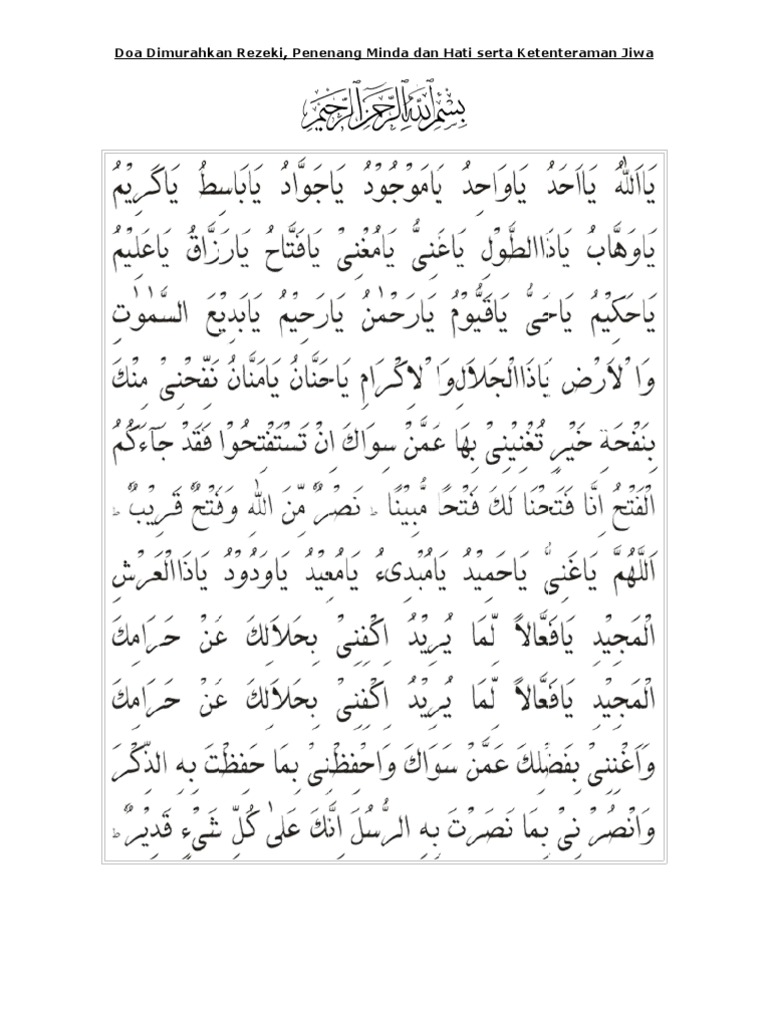 Doa Dimurahkan Rezeki, Penenang Minda dan Hati serta Ketenteraman Jiwa
بِسْمِ ٱللَّهِ ٱلرَّحْمَٰنِ ٱلرَّحِيمِ
يَااَللّٰهُ يَااَحَدُ يَاوَاحِدُ يَامَوْجُوْدُ يَاجَوَّادُ يَابَاسِطُ يَاكَرِيْمُ
يَاوَهَّابُ يَاذَاالطَّوْلِ يَاغَنِيُّ يَامُغْنِيْ يَافَتَّاحُ يَارَزَّاقُ يَاعَلِيْمُ
يَاحَكِيْمُ يَاحَيُّ يَاقَيُّوْمُ يَارَحْمٰنُ يَارَحِيْمُ يَابَدِيْعَ السَّمٰوٰتِ
وَاْلاَرْضِ يَاذَاالْجَلاَلِ وَاْلاِكْرَامِ يَاحَنَّانُ يَامَنَّانُ نَفِّحْنِيْ مِنْكَ
بِنَفْحَةِ خَيْرٍ تُغْنِيْنِيْ بِهَا عَمَّنْ سِوَاكَ اِنْ تَسْتَفْتِحُوْا فَقَدْ جَآءَكُمُ
الْفَتْحُ اِنَّا فَتَحْنَا لَكَ فَتْحًا مُّبِيْنًا ۔ط نَصْرٌ مِّنَ اللهِ وَفَتْحٌ قَرِيْبٌ ۔ط
اَللَّهُمَّ يَاغَنِيُّ يَاحَمِيْدُ يَامُبْدِىءُ يَامُعِيْدُ يَاوَدُوْدُ يَاذَاالْعَرْشِ
الْمَجِيْدِ يَافَعَّالاً لِّمَا يُرِيْدُ اِكْفِنِيْ بِحَلاَلِكَ عَنْ حَرَامِكَ
الْمَجِيْدِ يَافَعَّالاً لِّمَا يُرِيْدُ اِكْفِنِيْ بِحَلاَلِكَ عَنْ حَرَامِكَ
وَاَغْنِنِيْ بِفَضْلِكَ عَمَّنْ سَوَاكَ وَاحْفِظْنِيْ بِمَا حَفِظْتَ بِهِ الذِّكْرَ
وَانْصُرْنِيْ بِمَا نَصَرْتَ بِهِ الرُّسُلَ اِنَّكَ عَلٰى كُلِّ شَيْءٍ قَدِيْرٌ ۔ط